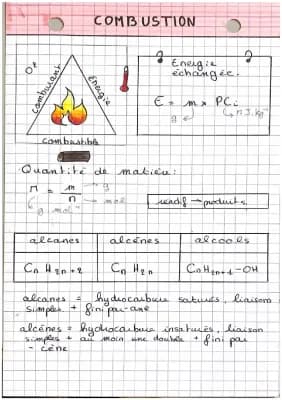 COMBUSTION
O²
comburant
Énergie
combustible
Energie
échangée.
E = m × PCi
Quantité de matière:
n = m → g
n → mol
g mol⁻¹
réactif → produits
alcanes alcènes alcools
Cn H2n+2 Cn H2n CnH2n+1-OH
alcanes = hydrocarbure saturés, liaisons
simples + fini par -ane
alcènes = hydrocarbure insaturés, liaison
simples + au moin une double + fini par
- cène